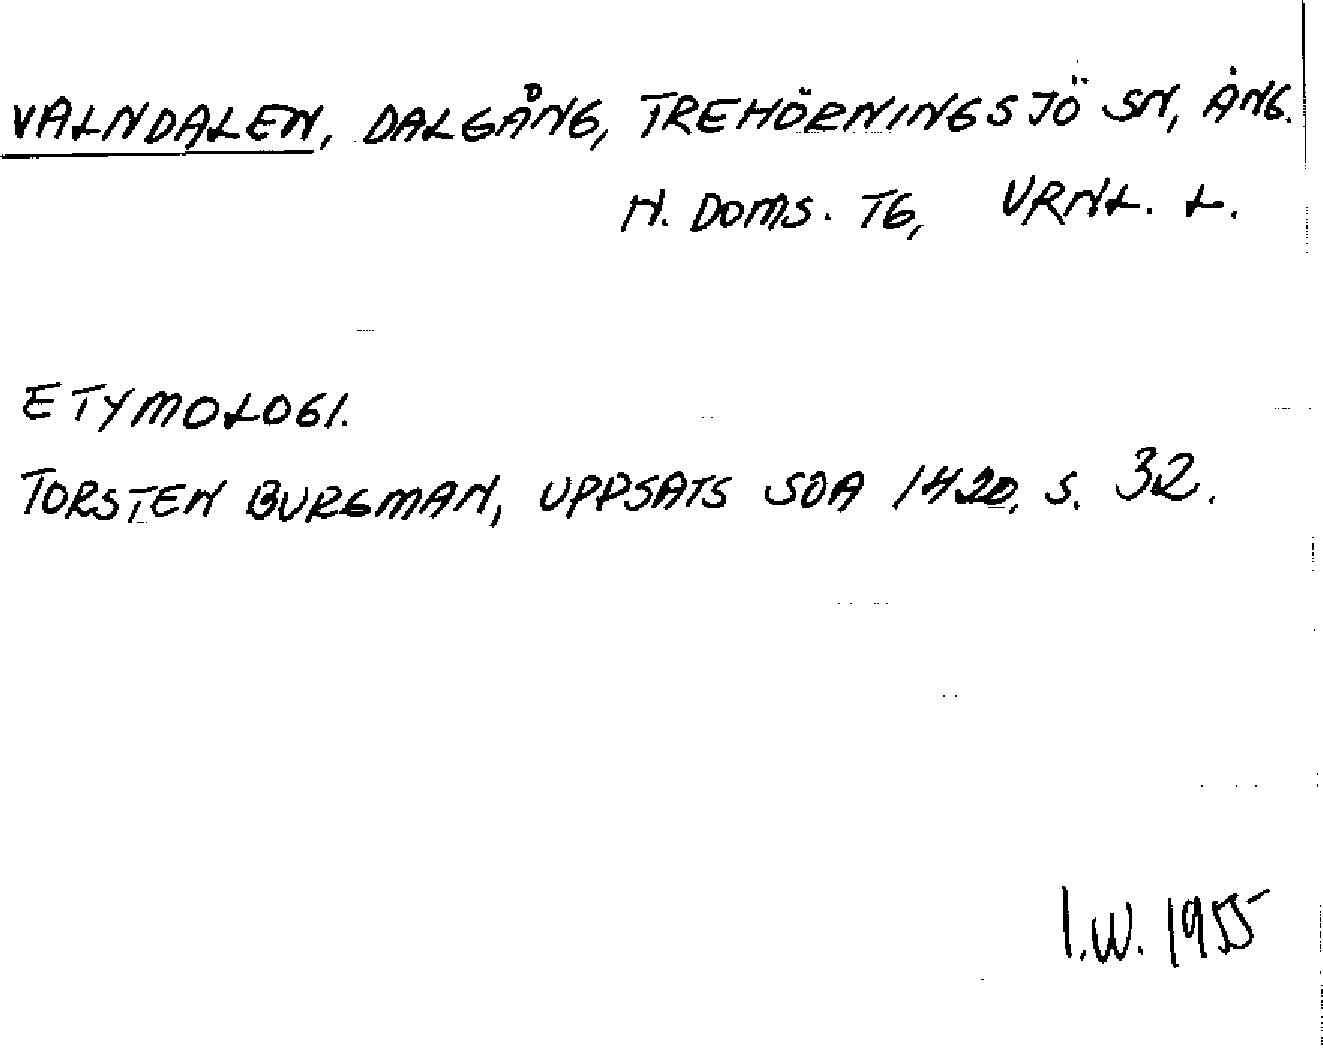 VALNDALEN, DALGÅNG, TREHÖRNINGSJÖ SN, ÅNG.
N. DOMS. TG, VRNL. L.
ETYMOLOGI.
TORSTEN BURGMAN, UPPSATS SOA 1420. S. 32.
I.W. 1955